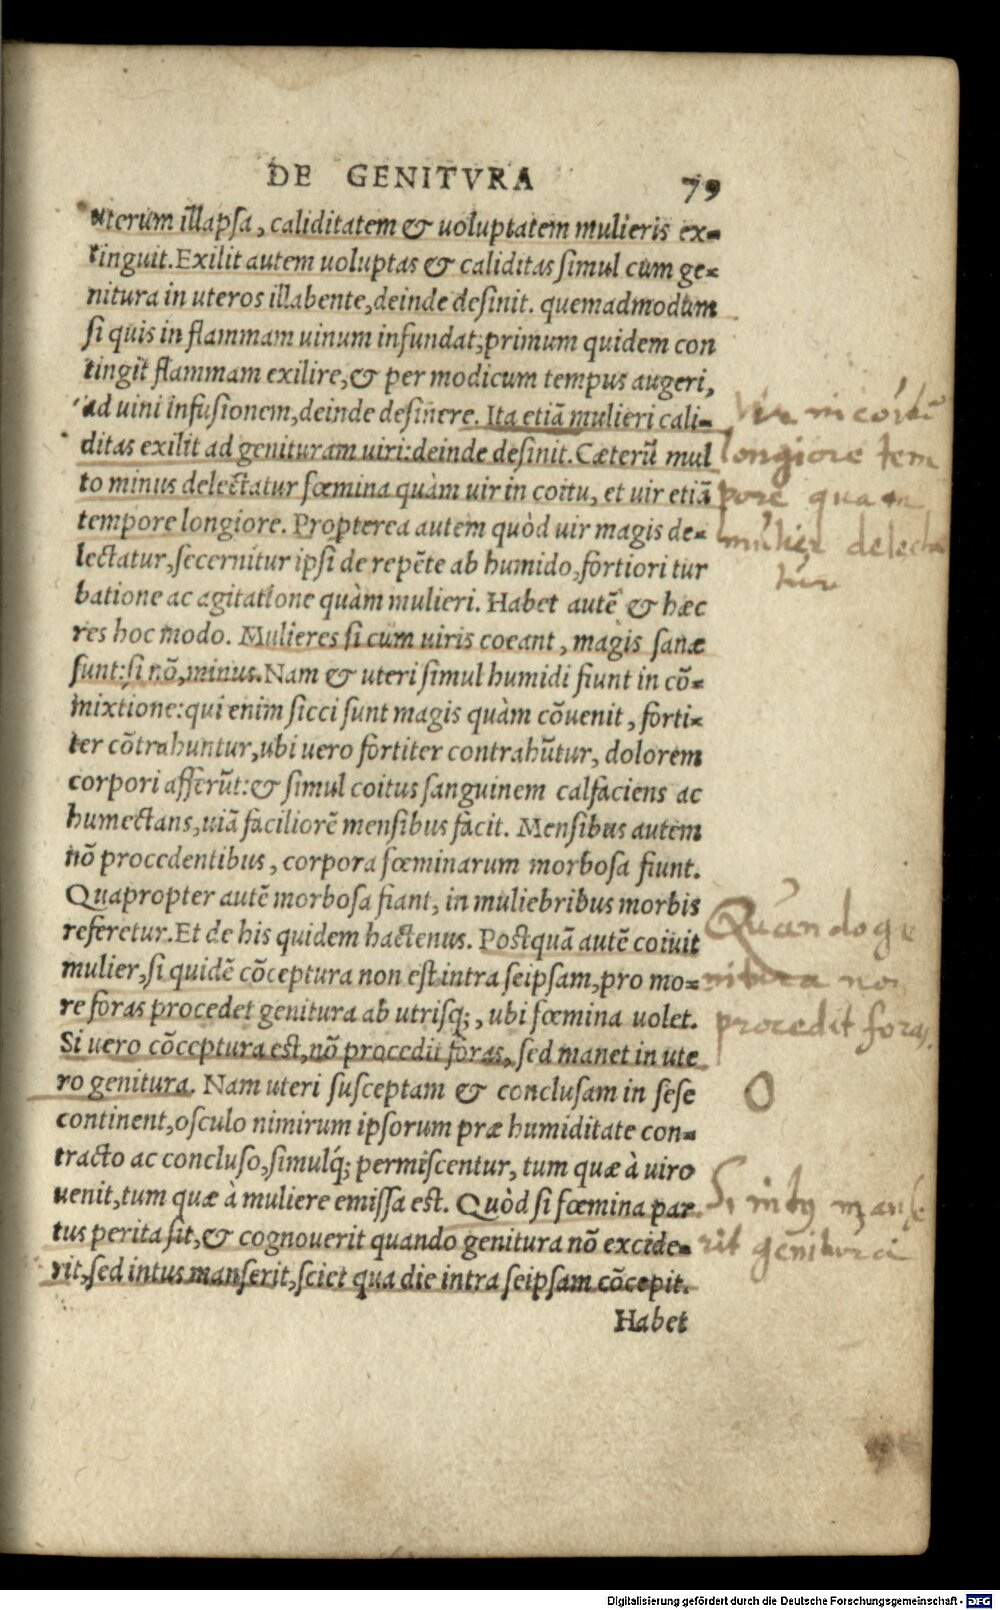 DE GENITVRA 79
uterum illapsa, caliditatem & uoluptatem mulieris ex=
tinguit. Exilit autem uoluptas & caliditas simul cum ge=
nitura in uteros illabente, deinde desinit. quemadmodum
si quis in flammam uinum infundat; primum quidem con
tingit flammam exilire, & per modicum tempus augeri,
ad uini infusionem, deinde desinere. Ita etiã mulieri cali=
ditas exilit ad genituram uiri: deinde desinit. Cæterũ mul
to minus delectatur fœmina quàm uir in coitu, et uir etiã
tempore longiore. Propterea autem quòd uir magis de=
lectatur, secernitur ipsi de repẽte ab humido, fortiori tur
batione ac agitatione quàm mulieri. Habet autẽ & hæc
res hoc modo. Mulieres si cum uiris coeant, magis sanæ
sunt: si nõ, minus. Nam & uteri simul humidi fiunt in cõ=
mixtione: qui enim sicci sunt magis quàm cõuenit, forti=
ter cõtrahuntur, ubi uero fortiter contrahũtur, dolorem
corpori afferũt: & simul coitus sanguinem calfaciens ac
humectans, uiã faciliorẽ mensibus facit. Mensibus autem
nõ procedentibus, corpora fœminarum morbosa fiunt.
Quapropter autẽ morbosa fiant, in muliebribus morbis
referetur. Et de his quidem hactenus. Postquã autẽ coiuit
mulier, si quidẽ cõceptura non est intra seipsam, pro mo=
re foras procedet genitura ab utrisq;, ubi fœmina uolet.
Si uero cõceptura est, nõ procedit foras, sed manet in ute
ro genitura. Nam uteri susceptam & conclusam in sese
continent, osculo nimirum ipsorum præ humiditate con=
tracto ac concluso, simulq́; permiscentur, tum quæ à uiro
uenit, tum quæ à muliere emissa est. Quòd si fœmina par
tus perita sit, & cognouerit quando genitura nõ excide=
rit, sed intus manserit, sciet qua die intra seipsam cõcepit.
Habet
Vir in coitu
longiore tem
pore quam
mulier delecta
tur
Quando ge
nitura non
procedit foras.
O
Si intus manse
rit genitura
Digitalisierung gefördert durch die Deutsche Forschungsgemeinschaft - DFG